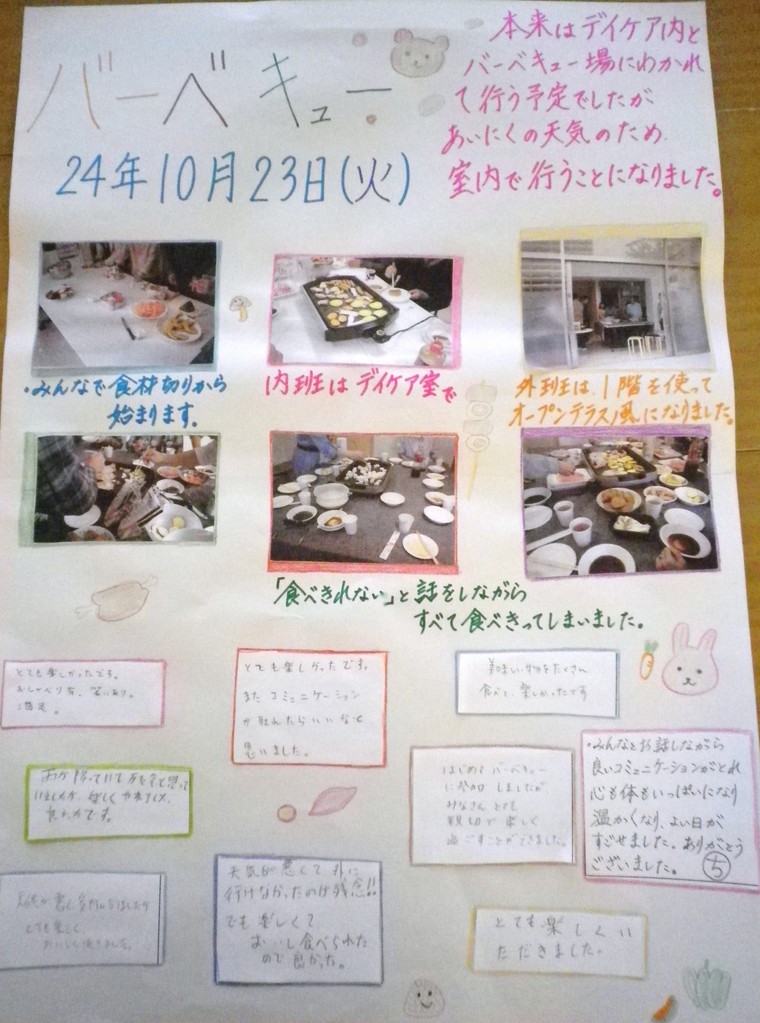 バーベキュー
24年10月23日(火)
本来はデイケア内と
バーベキュー場にわかれ
て行う予定でしたが
あいにくの天気のため
室内で行うことになりました。
・みんなで食材切りから
始まります。
内班はデイケア室で
外班は、1階を使って
オープンテラス風になりました。
「食べきれない」と話をしながら
すべて食べきってしまいました。
とても楽しかったです。
おしゃべり有、笑いあり。
ご満足。
とても楽しかったです。
またコミュニケーション
が取れたらいいなと
思いました。
美味い物をたくさん
食べて、楽しかったです
雨が降っていて
楽しく
良かったです。
はじめてバーベキュー
に参加しましたが
みなさんとても
親切で楽しく
過ごすことができました。
・みんなとお話しながら
良いコミュニケーションがとれ
心も体もいっぱいになり
温かくなり、よい日が
すごせました。ありがとう
ございました。ち
天気が悪く室内になりましたが
とても楽しく
おいしく頂きました。
天気が悪くて外に
行けなかったのが残念!!
でも楽しくて、
おいし食べられた
ので良かった。
とても楽しくい
ただきました。